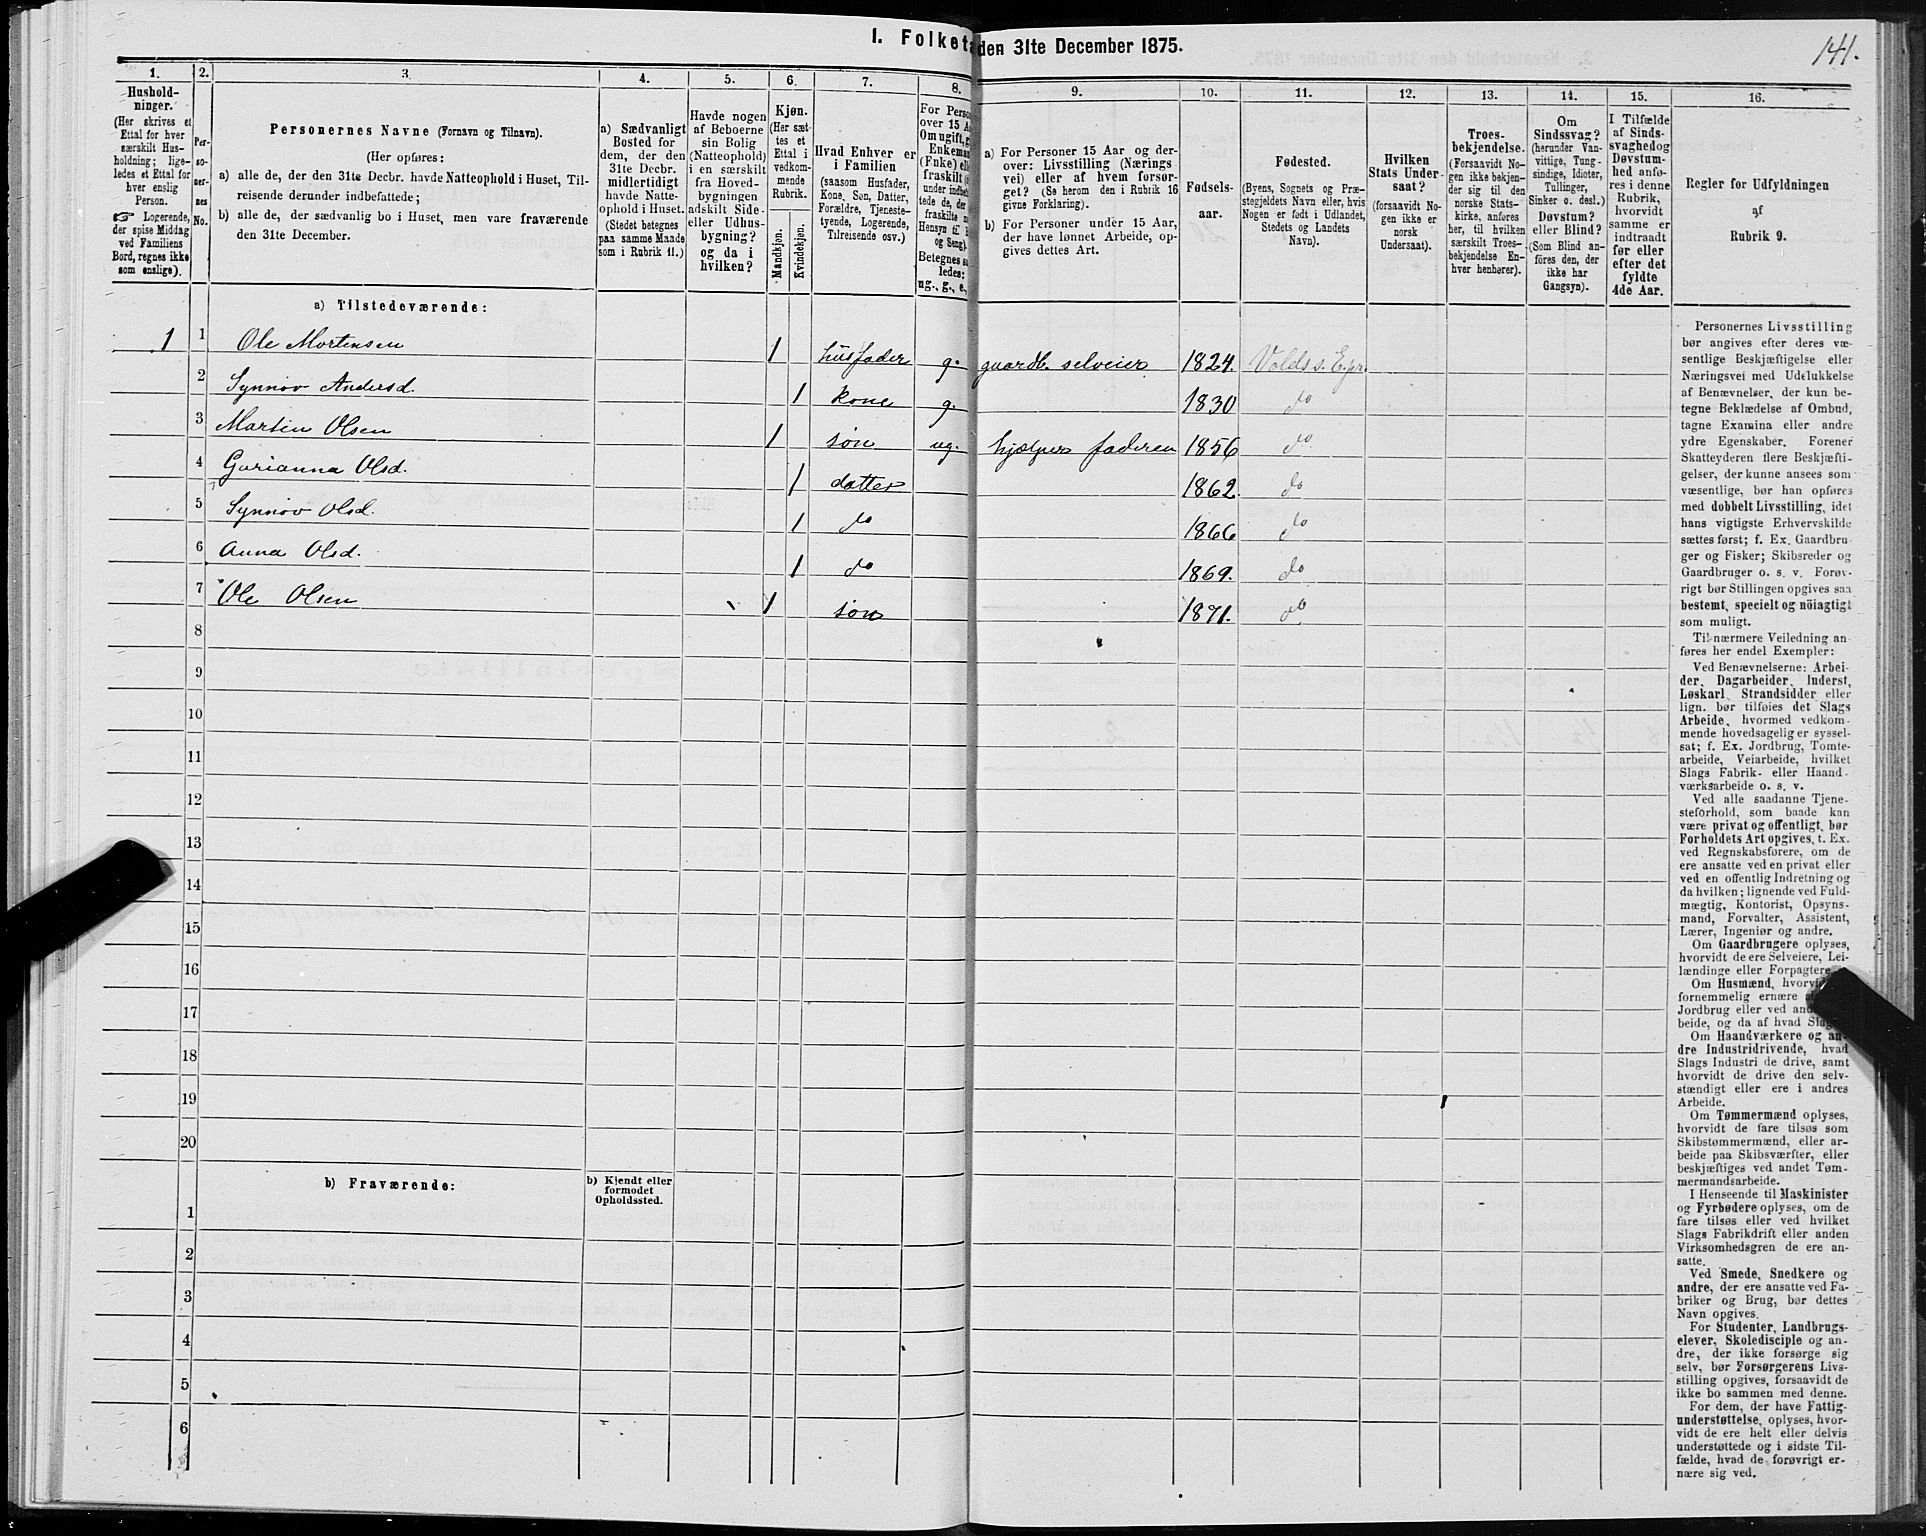 I. Folketa
den 31te December 1875.
141.
1.
Hushold-
ninger.
(Her skrives et
Ettal for hver
særskilt Hus-
holdning; lige-
ledes et Ettal for
hver enslig
Person.
☞ Logerende,
der spise Middag
ved Familiens
Bord, regnes ikke
som enslige).
2.
Per-
so-
ner-
nes
No.
3.
Personernes Navne (Fornavn og Tilnavn).
(Her opføres:
a) alle de, der den 31te Decbr. havde Natteophold i Huset, Til-
reisende derunder indbefattede;
b) alle de, der sædvanlig bo i Huset, men vare fraværende
den 31te December.
4.
a) Sædvanligt
Bosted for
dem, der den
31te Decbr.
midlertidigt
havde Natte-
ophold i Huset.
(Stedet betegnes
paa samme Maade
som i Rubrik 11.)
5.
Havde nogen
af Beboerne
sin Bolig
(Natteophold)
i en særskilt
fra Hoved-
bygningen
adskilt Side-
eller Udhus-
bygning?
og da i
hvilken?
6.
Kjøn.
(Her sæt-
tes et
Ettal i
vedkom-
mende
Rubrik.
Mandkjøn.
Kvindekjøn.
7.
Hvad Enhver er
i Familien
(saasom Husfader,
Kone, Søn, Datter,
Forældre, Tjeneste-
tyende, Logerende,
Tilreisende osv.)
8.
For Perso
over 15 A
Om ugift, g
Enkema
(Enke) ell
fraskilt
under indbe
tede de, der
fraskilte
Hensyn til
og Seng).
Betegnes s
ledes:
ug., g., e.,
9.
a) For Personer 15 Aar og der-
over: Livsstilling (Nærings
vei) eller af hvem forsør-
get? (Se herom den i Rubrik 16
givne Forklaring).
b) For Personer under 15 Aar,
der have lønnet Arbeide, op-
gives dettes Art.
10.
Fødsels-
aar.
11.
Fødested.
(Byens, Sognets og Præ-
stegjeldets Navn eller, hvis
Nogen er født i Udlandet,
Stedets og Landets
Navn).
12.
Hvilken
Stats Under-
saat?
(forsaavidt No-
gen ikke er
norsk
Undersaat).
13.
Troes-
bekjendelse.
(Forsaavidt No-
gen ikke bekjen-
der sig til den
norske Stats-
kirke, anføres
her, til hvilken
særskilt Troes-
bekjendelse En-
hver henhører).
14.
Om
Sindssvag?
(herunder Van-
vittige, Tung-
sindige, Idioter,
Tullinger,
Sinker o. desl.)
Døvstum?
eller Blind?
(Som Blind an-
føres den, der
ikke har
Gangsyn).
15.
I Tilfælde
af Sinds-
svaghed og
Døvstum-
hed anfø-
res i denne
Rubrik,
hvorvidt
samme er
indtraadt
før eller
efter det
fyldte
4de Aar.
16.
Regler for Udfyldningen
af
Rubrik 9.
a) Tilstedeværende:
1 1 Ole Mortensen 1 husfader g. gaardb. selveier 1824. Volds s. E.pr.
2 Synnøv Andersd. 1 kone g. 1830 do
3 Martin Olsen 1 søn ug. hjælper faderen 1856 do
4 Gurianna Olsd. 1 datter 1862. do
5 Synnøv Olsd. 1 do 1866 do
6 Anna Olsd. 1 do 1869. do
7 Ole Olsen 1 søn 1871. do
8
9
10
11
12
13
14
15
16
17
18
19
20
b) Fraværende:
b) Kjendt eller
formodet
Opholdssted.
1
2
3
4
5
6
Personernes Livsstilling
bør angives efter deres væ-
sentlige Beskjæftigelse eller
Næringsvei med Udelukkelse
af Benævnelser, der kun be-
tegne Beklædelse af Ombud,
tagne Examina eller andre
ydre Egenskaber. Forener
Skatteyderen flere Beskjæfti-
gelser, der kunne ansees som
væsentlige, bør han opføres
med dobbelt Livsstilling, idet
hans vigtigste Erhvervskilde
sættes først; f. Ex. Gaardbru-
ger og Fisker; Skibsreder og
Gaardbruger o. s. v. Forøv-
rigt bør Stillingen opgives saa
bestemt, specielt og nöiagtigt
som muligt.
Til nærmere Veiledning an-
føres her endel Exempler:
Ved Benævnelserne: Arbei-
der, Dagarbeider, Inderst,
Løskarl, Strandsidder eller
lign. bør tilføies det Slags
Arbeide, hvormed vedkom-
mende hovedsagelig er syssel-
sat; f. Ex. Jordbrug, Tomte-
arbeide, Veiarbeide, hvilket
Slags Fabrik- eller Haand-
værksarbeide o. s. v.
Ved alle saadanne Tjene-
steforhold, som baade kan
være privat og offentligt, bør
Forholdets Art opgives, t. Ex.
ved Regnskabsførere, om de
ere ansatte ved en privat eller
ved en offentlig Indretning og
da hvilken; lignende ved Fuld-
mægtig, Kontorist, Opsyns-
mand, Forvalter, Assistent,
Lærer, Ingeniør og andre.
Om Gaardbrugere oplyses,
hvorvidt de ere Selveiere, Lei-
lændinge eller Forpagtere
Om Husmænd, hvorvi
fornemmelig ernære
Jordbrug eller ved an
beide, og da af hvad Slag
Om Haandværkere og an-
dre Industridrivende, hvad
Slags Industri de drive, samt
hvorvidt de drive den selv-
stændigt eller ere i andres
Arbeide.
Om Tømmermænd oplyses,
hvorvidt de fare tilsøs som
Skibstømmermænd, eller ar-
beide paa Skibsværfter, eller
beskjæftiges ved andet Tøm-
mermandsarbeide.
I Henseende til Maskinister
og Fyrbødere oplyses, om de
fare tilsøs eller ved hvilket
Slags Fabrikdrift eller anden
Virksomhedsgren de ere an-
satte.
Ved Smede, Snedkere og
andre, der ere ansatte ved Fa-
briker og Brug, bør dettes
Navn opgives.
For Studenter, Landbrugs-
elever, Skoledisciple og an-
dre, der ikke forsørge sig
selv, bør Forsørgerens Livs-
stilling opgives, forsaavidt de
ikke bo sammen med denne.
For dem, der have Fattig-
understøttelse, oplyses, hvor-
vidt de ere helt eller delvis
understøttede og i sidste Til-
fælde, hvad de forøvrigt er-
nære sig ved.